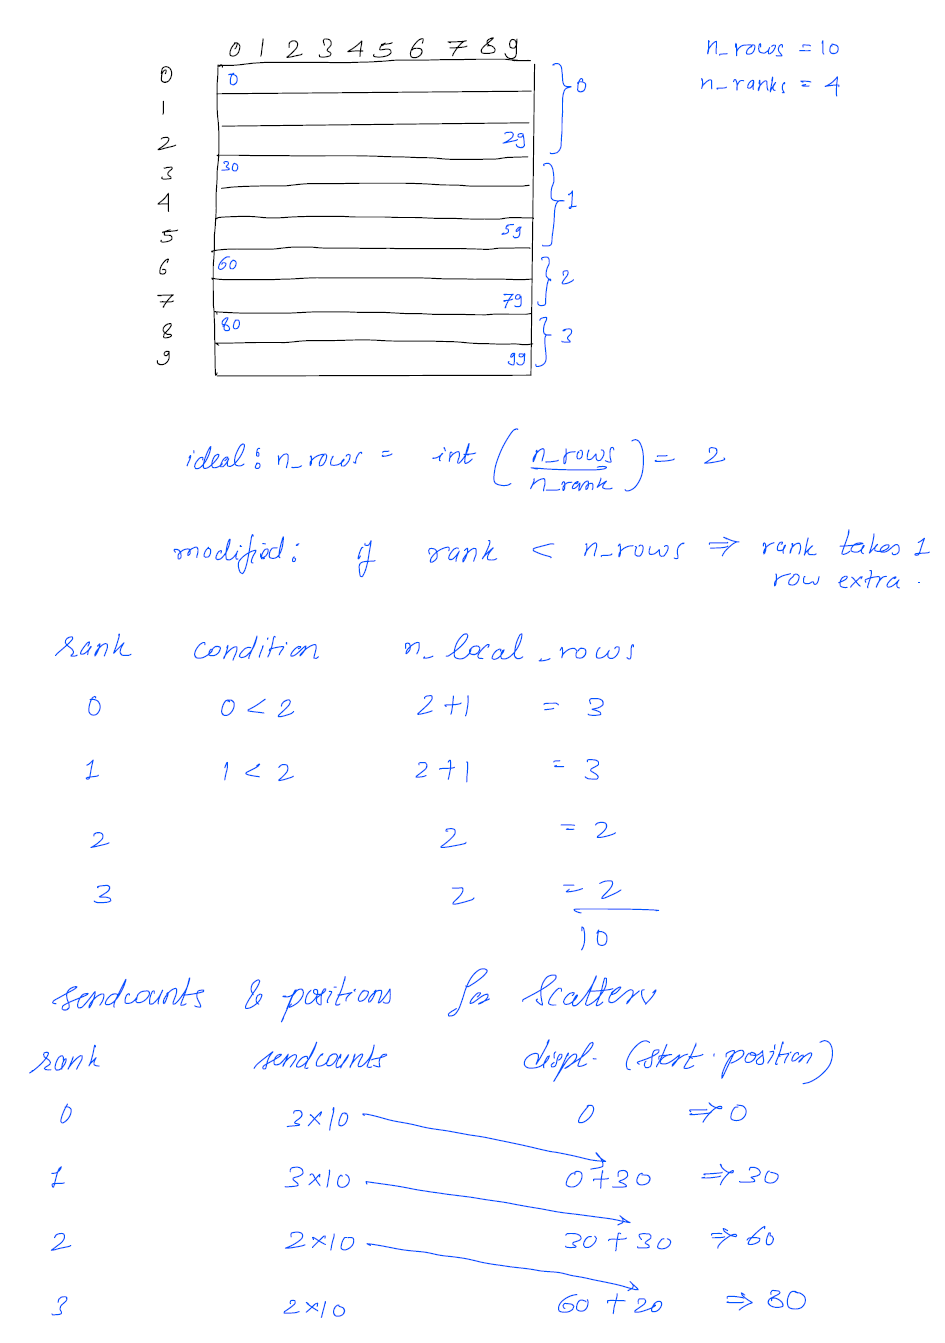 0 1 2 3 4 5 6 7 8 9
n_rows = 10
n_ranks = 4
0 0
1
2 29
0
3 30
4
5 59
1
6 60
7 79
2
8 80
9 99
3
ideal: n_rows = int ( n_rows / n_rank ) = 2
modified: if rank < n_rows ⇒ rank takes 1
row extra.
rank condition n_local_rows
0 0 < 2 2 + 1 = 3
1 1 < 2 2 + 1 = 3
2 2 = 2
3 2 = 2
10
sendcounts & positions for Scatterv
rank sendcounts displ. (start.position)
0 3×10 0 ⇒ 0
1 3×10 0+30 ⇒ 30
2 2×10 30+30 ⇒ 60
3 2×10 60+20 ⇒ 80